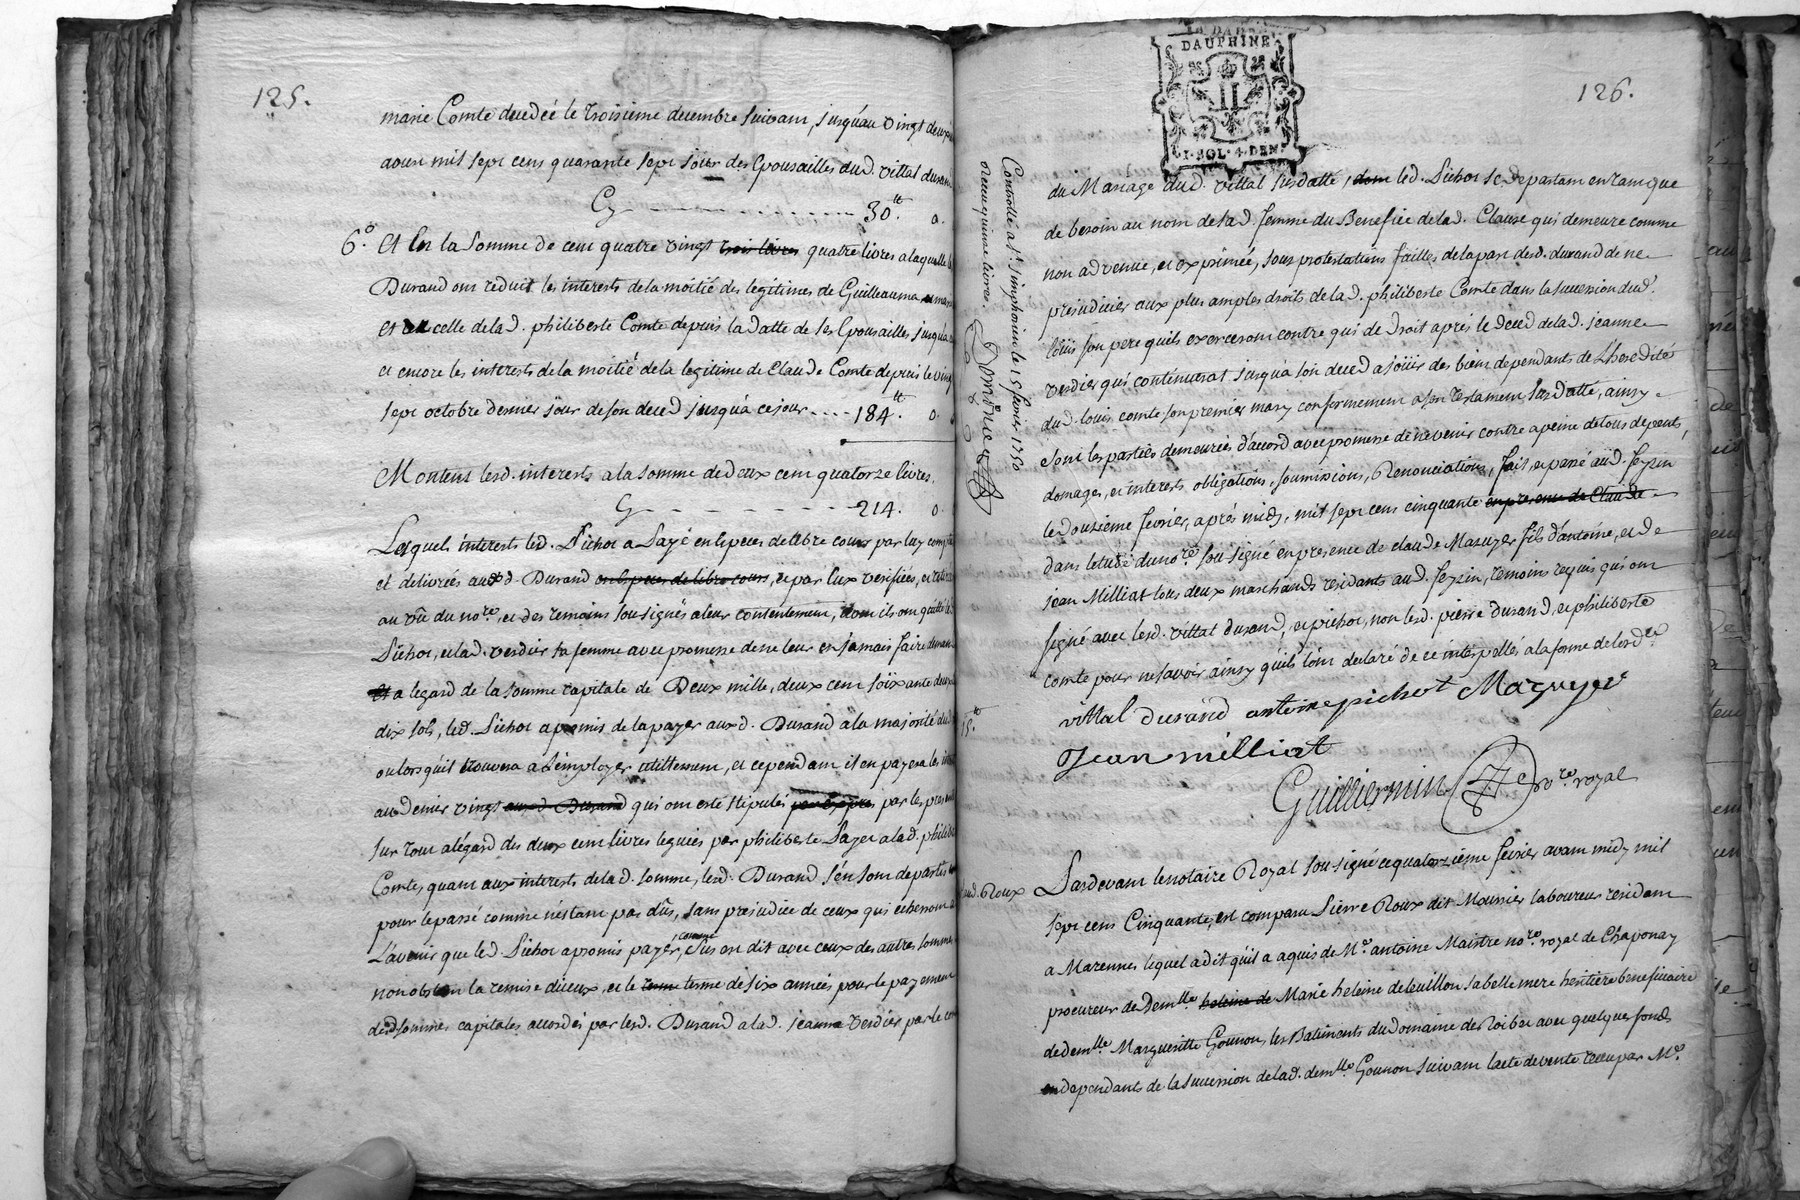 125.
marie Comte decedée le troisieme decembre suivam, jusqu'au vingt deux
aoust mil sept cens quarante sept jour des Epousailles dud. vittal durand
Cy - - - - - - - - - - - 30.tt 0.
6.o Et En la somme de cent quatre vingt trois livres quatre livres a laquelle
Durand ont reduit les interests de la moitié des legitimes de Guilleauma
et celle de lad. philiberte Comte depuis la datte de ses Epousailles jusqu'a
et encore les interests de la moitié de la legitime de Claude Comte depuis le vingt
sept octobre dernier jour de son deced jusqu'a ce jour .... 184.tt 0.
Montent lesd. interests a la somme de deux cent quatorze livres.
Cy - - - - - - - - - 214. 0.
Lesquels interests led. Pichot a Payé en Especes de libre cours par luy
et delivrées auxd. Durand en Especes de libre cours, et par Eux verifiées, et
au vû du nore. et des temoins soussignés a leur contentement, dont ils ont quitté
Pichot, et lad. Verdier sa femme avec promesse de ne leur en jamais faire
et a legard de la somme capitale de Deux mille, deux cent soixante deux
dix sols, led. Pichot a promis de la payer auxd. Durand a la majorité
ou lorsqu'il trouvera a L'employer utilement, et cependant il en payera les
au denier vingt auxd. Durand qui ont esté stipulés par Exprés par les
sur tout a légard des deux cent livres leguées par philiberte Payer a lad.
Comte, quant aux interests de lad. somme, lesd. Durand s'en sont departis
pour le passé comme n'estant pas dûs, sans prejudice de ceux qui echerront a
L'avenir que led. Pichot a promis payer, comme sus en dit avec ceux des autres somme
nonobstant la remise d'iceux, et le terme terme de six années pour le payement
desd. sommes capitales accordés par lesd. Durand a lad. jeanne Verdier par le
126.
DAUPHINE
II
1. SOL. 4. DEN.
Controllé a St. simphorien le 15 fevrier 1750
receu quinze livres.
du Mariage dud. vittal susdatté, dont led. Pichot se departant en tant que
de besoin au nom de sa d. femme du Benefice de lad. Clause qui demeure comme
non advenue, et exprimée, sous protestations faittes de la part desd. durand de ne
prejudicier aux plus amples droits de lad. philiberte Comte dans la succession dud.
loüis son pere qu'ils exerceront contre qui de Droit aprés le deced de lad. jeanne
verdier qui continuerat jusqu'a son deced a jöuir des biens dependants de L'heredité
dud. louis comte son premier mary conformement a son testament susdatté, ainsy
sont les parties demeurées d'accord avec promesse de n'evenir contre a peine de tous depents,
domages, et interests obligations, soumissions, Renonciations, fait, et passé aud. feyzin
le Douzieme fevrier, aprés midy, mil sept cens cinquante en presence de Claude
dans letude du nore. soussigné en presence de claude Mazuyer fils d'antoine, et de
jean Milliat tous deux marchands residants aud. feyzin, temoins requis qui ont
signé avec lesd. vittal durand, et pichot, non lesd. pierre durand, et philiberte
comte pour ne savoir ainsy qu'ils l'ont declaré de ce interpellés a la forme de lordce.
15.tt
vittal durand antoine pichot Mazuyer
Jean milliat
Guilliermin nore. royal
aud. Roux
Pardevant le notaire Royal soussigné ce quatorzieme fevrier avant midy mil
sept cens Cinquante, est comparu Pierre Roux dit Mounier laboureur residant
a Marennes lequel a dit qu'il a aquis de Me. antoine Maistre nore. royal de Chaponay
procureur de Demlle. heleine de Marie heleine deleuillon sa belle mere heritiere beneficiaire
de demlle. Marguerite Gounon, les Batiments du domaine de Roibet avec quelques fonds
en dependants de la succession de lad. demlle. Gounon suivant lacte de vente receu par Me.